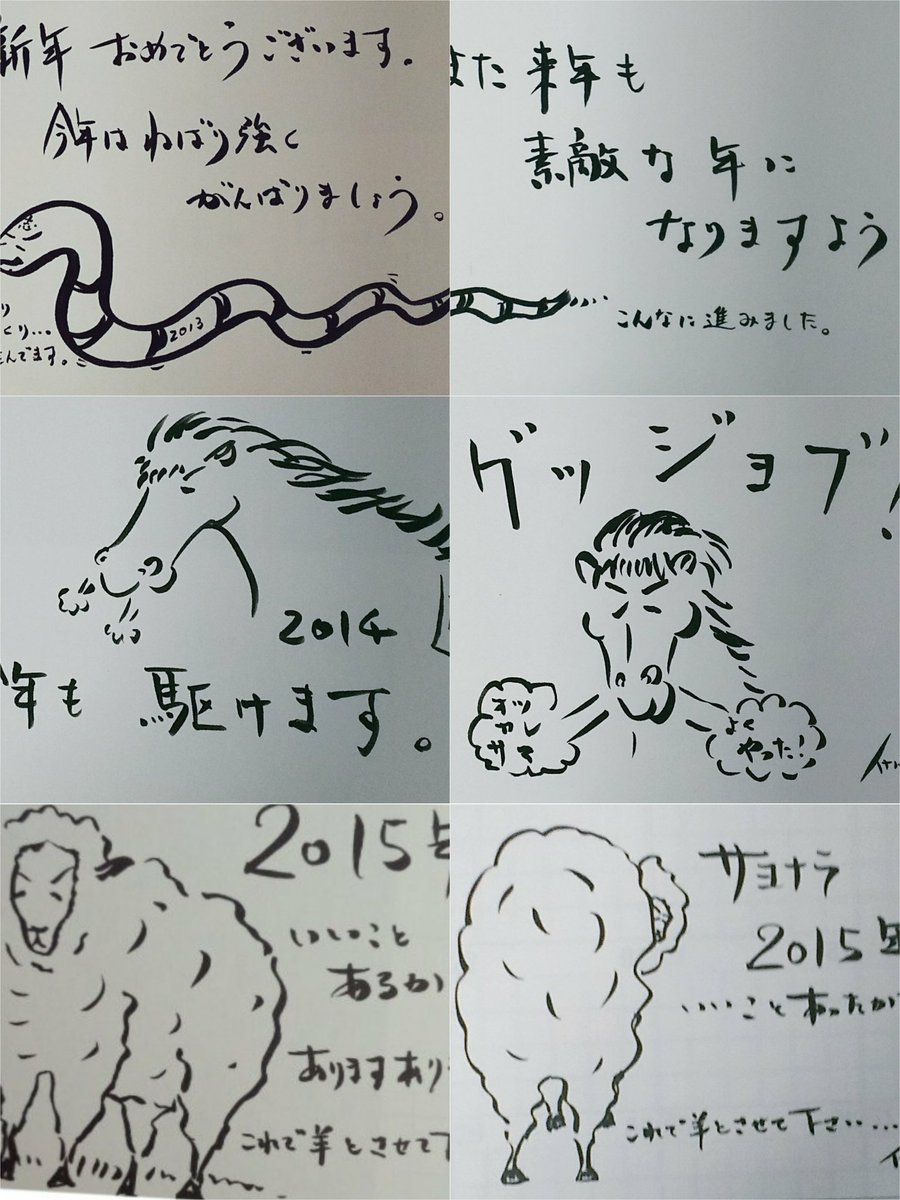 新年 おめでとうございます。
今年は ねばり強く
がんばりましょう。
2013
り
くり…
んでます。
また 来年も
素敵な 年に
なりますよう
こんなに進みました。
2014
年も 駆けます。
グッ ジョブ!
オツ
カレ
サマ
よく
やった!
2015年
いいこと
あるか
ありますあり
これで羊とさせて下
サヨナラ
2015年
いいことあったか
これで羊とさせて下さい…